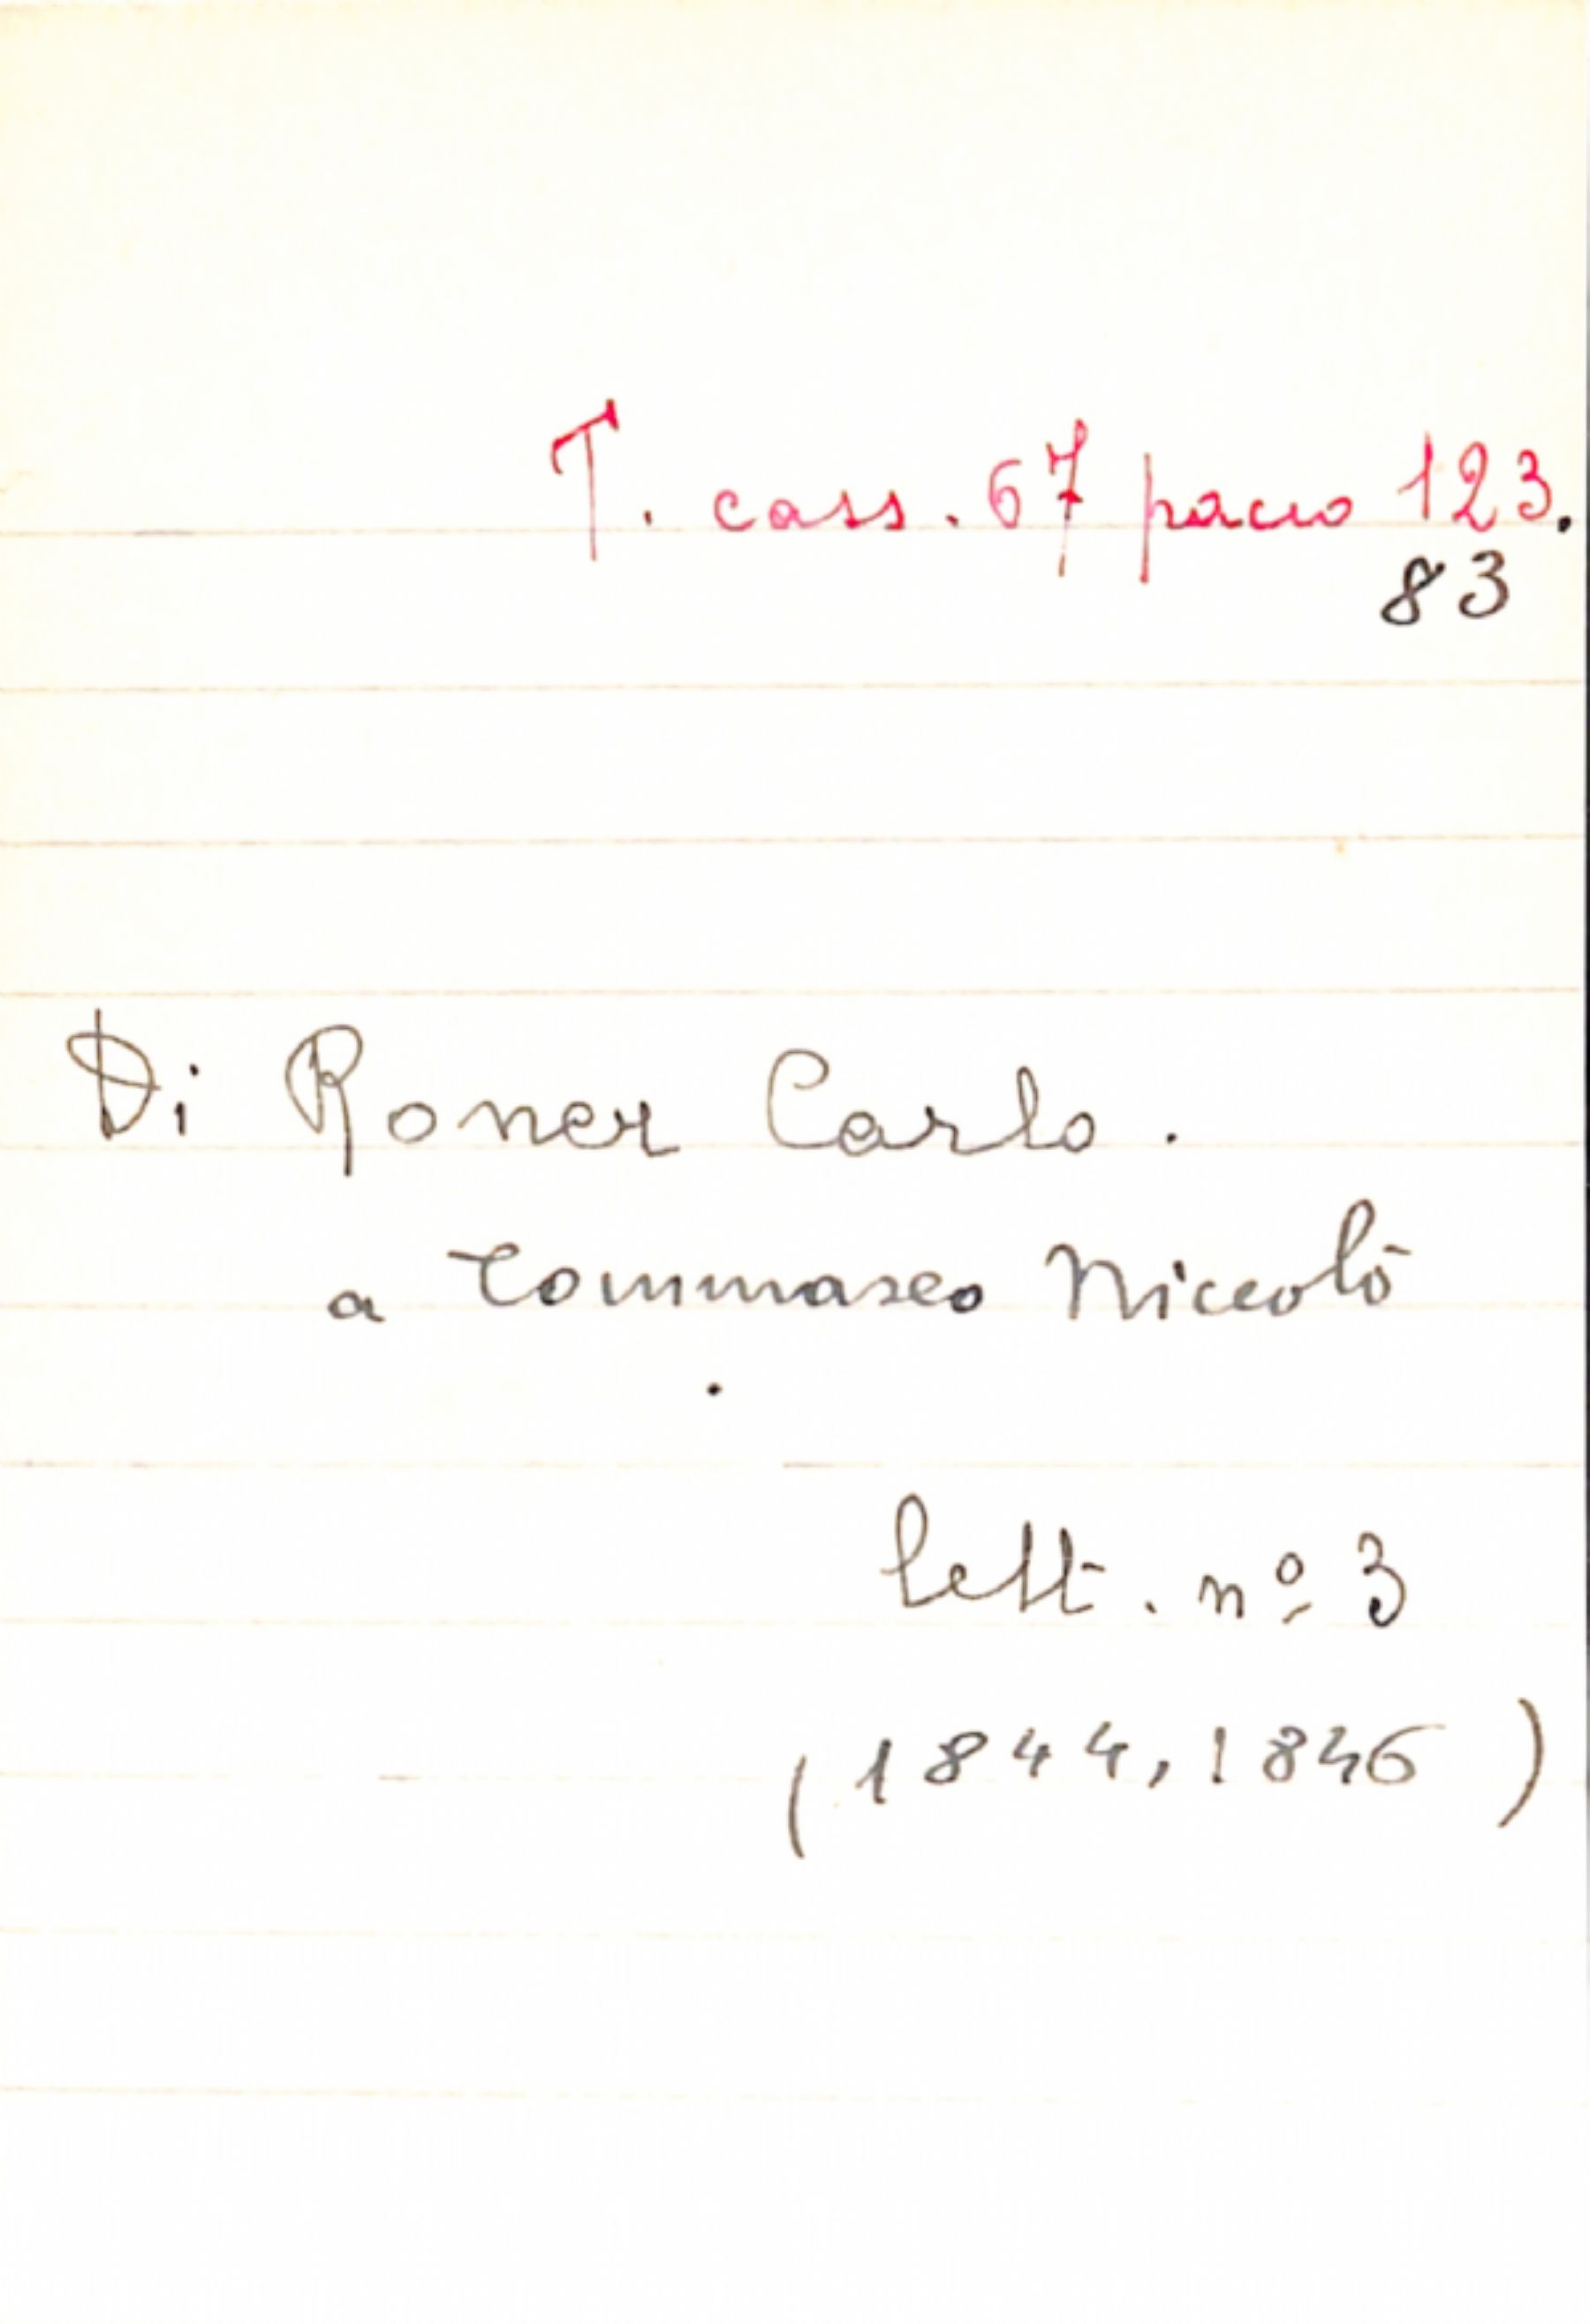 T. cass. 67 pacco 123.
83
Di Roner Carlo.
a Tommaseo Niccolò
lett. nº 3
(1844, 1846)